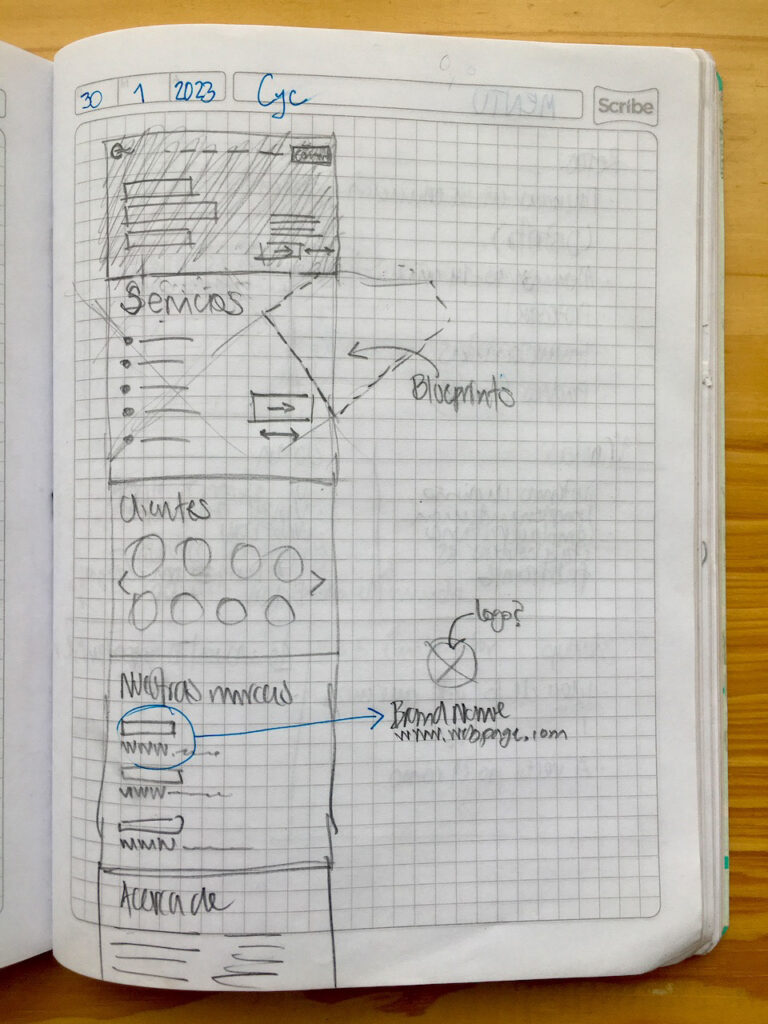 30 1 2023 Cyc
Scribe
Servicios
Blueprints
Clientes
Logo?
Nuestras marcas
Brand Name
www.webpage.com
www.
www
www
Acerca de